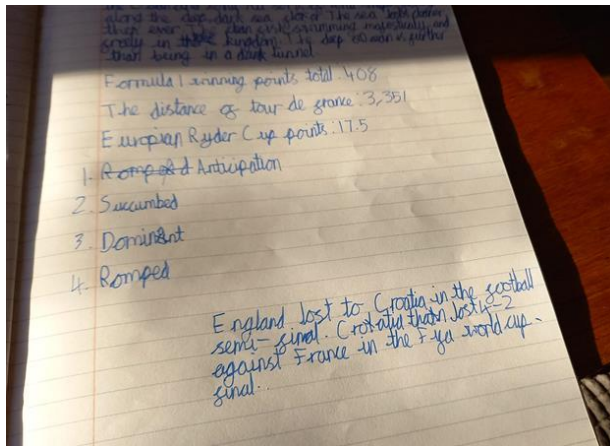 along the deep dark sea floor. The sea looks
then ever. swimming majestically and
in the kingdom. The deep ocean is further
than being in a dark tunnel
Formula 1 winning points total: 408
The distance of tour de france: 3,351
Europian Ryder Cup points: 17.5
1. Romped Anticipation
2. Succumbed
3. Dominant
4. Romped
England lost to Croatia in the football
semi-final. lost 4-2
against France in the Fifa world cup
final.